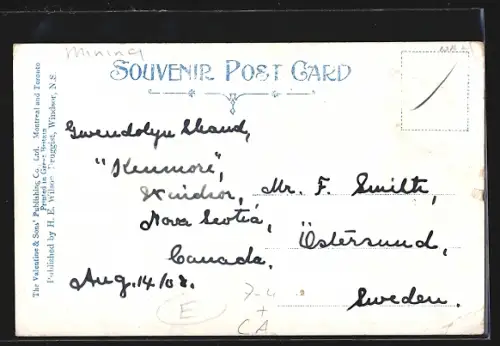 Mining
SOUVENIR POST CARD
The Valentine & Sons' Publishing Co., Ltd. Montreal and Toronto
Printed in Great Britain
Published by H. E. Wilson, Druggist, Windsor, N.S.
Gwendolyn Shand,
"Kenmore",
Windsor,
Nova Scotia,
Canada.
Aug. 14/08.
Mr. F. Smith,
Östersund,
Sweden.
7-4
+
CA
E